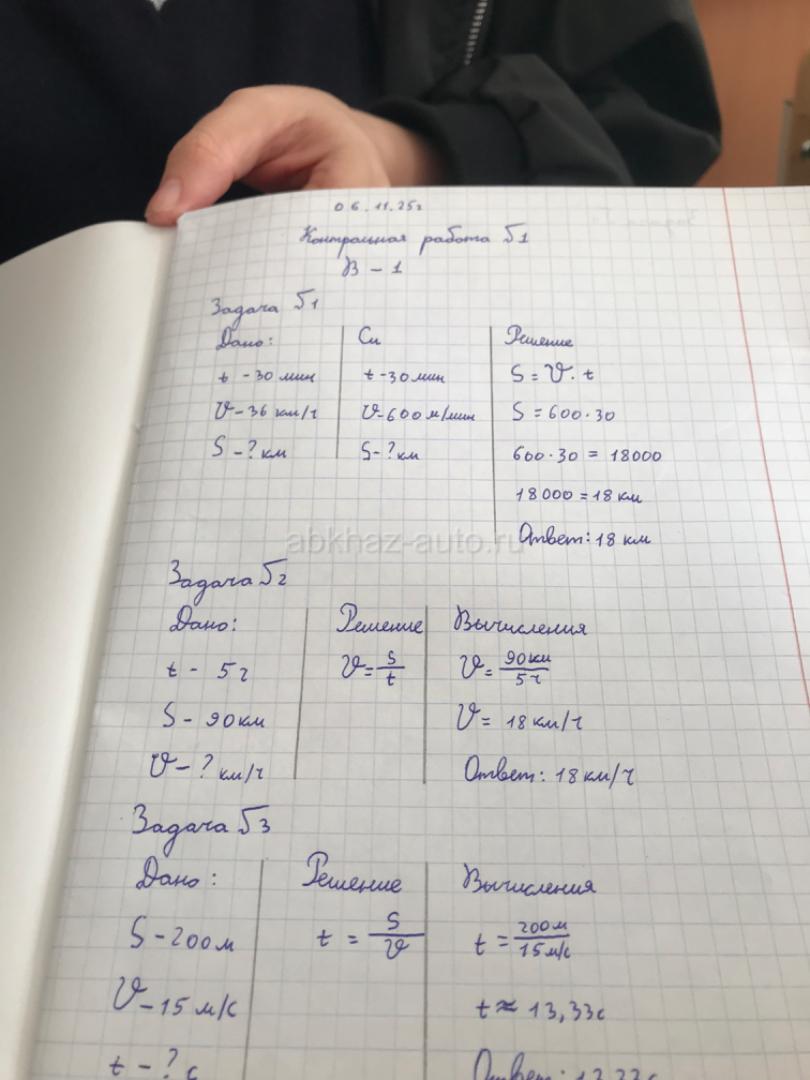 06.11.25г
Контрольная работа №1
В - 1
Задача №1
Дано: Си Решение
t - 30 мин t - 30 мин S = V · t
V - 36 км/ч V - 600 м/мин S = 600 · 30
S - ? км S - ? км 600 · 30 = 18000
18000 = 18 км
Ответ: 18 км
abkhaz-auto.ru
Задача №2
Дано: Решение Вычисления
t - 5ч V = S/t V = 90км/5ч
S - 90км V = 18 км/ч
V - ? км/ч Ответ: 18 км/ч
Задача №3
Дано: Решение Вычисления
S - 200 м t = S/V t = 200м/15м/с
V - 15 м/с t ≈ 13,33с
t - ? с Ответ: 13,33с